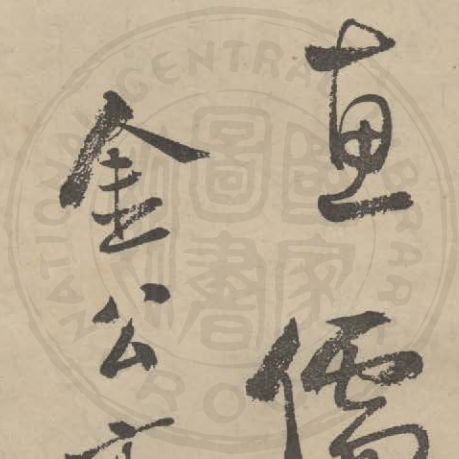 直儒
金公
NATIONAL CENTRAL LIBRARY
R.O.C.
國家圖書